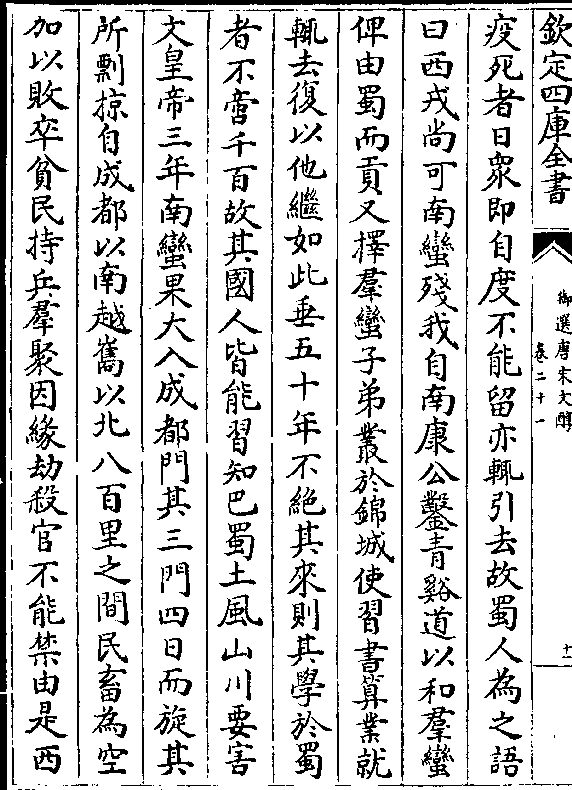 欽定四庫全書
御選唐宋文醇
卷二十一
十一
疫死者日衆即自度不能留亦輒引去故蜀人為之語
曰西戎尚可南蠻殘我自南康公鑿青谿道以和羣蠻
俾由蜀而貢又擇羣蠻子弟叢於錦城使習書算業就
輒去復以他繼如此垂五十年不絕其來則其學於蜀
者不啻千百故其國人皆能習知巴蜀土風山川要害
文皇帝三年南蠻果大入成都門其三門四日而旋其
所剽掠自成都以南越嶲以北八百里之間民畜為空
加以敗卒貧民持兵羣聚因緣劫殺官不能禁由是西